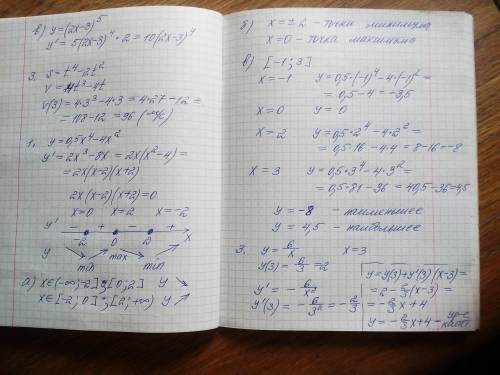 в) y=(2x-3)^5
y'=5(2x-3)^4·2=10(2x-3)^4
3. s=t^4-2t^2
v=4t^3-4t
v(3)=4·3^3-4·3=4·27-12=
=108-12=96 (м/с)
1. y=0,5x^4-4x^2
y'=2x^3-8x=2x(x^2-4)=
=2x(x-2)(x+2)
2x(x-2)(x+2)=0
x=0 x=2 x=-2
y' - + - +
-2 0 2 x
y ↘ ↗ ↘ ↗
min max min
а) x∈(-∞;-2];[0;2] y ↘
x∈[-2;0];[2;+∞) y ↗
б) x=±2 - точки минимума
x=0 - точка максимума
в) [-1;3]
x=-1 y=0,5·(-1)^4-4·(-1)^2=
=0,5-4=-3,5
x=0 y=0
x=2 y=0,5·2^4-4·2^2=
=0,5·16-4·4=8-16=-8
x=3 y=0,5·3^4-4·3^2=
=0,5·81-36=40,5-36=4,5
y=-8 - наименьшее
y=4,5 - наибольшее
3. y=6/x x=3
y(3)=6/3=2
y'=-6/x^2
y'(3)=-6/3^2=-2/3
y=y(3)+y'(3)(x-3)=
=2-2/3(x-3)=
=-2/3x+4
y=-2/3x+4 - ур-е
касат.